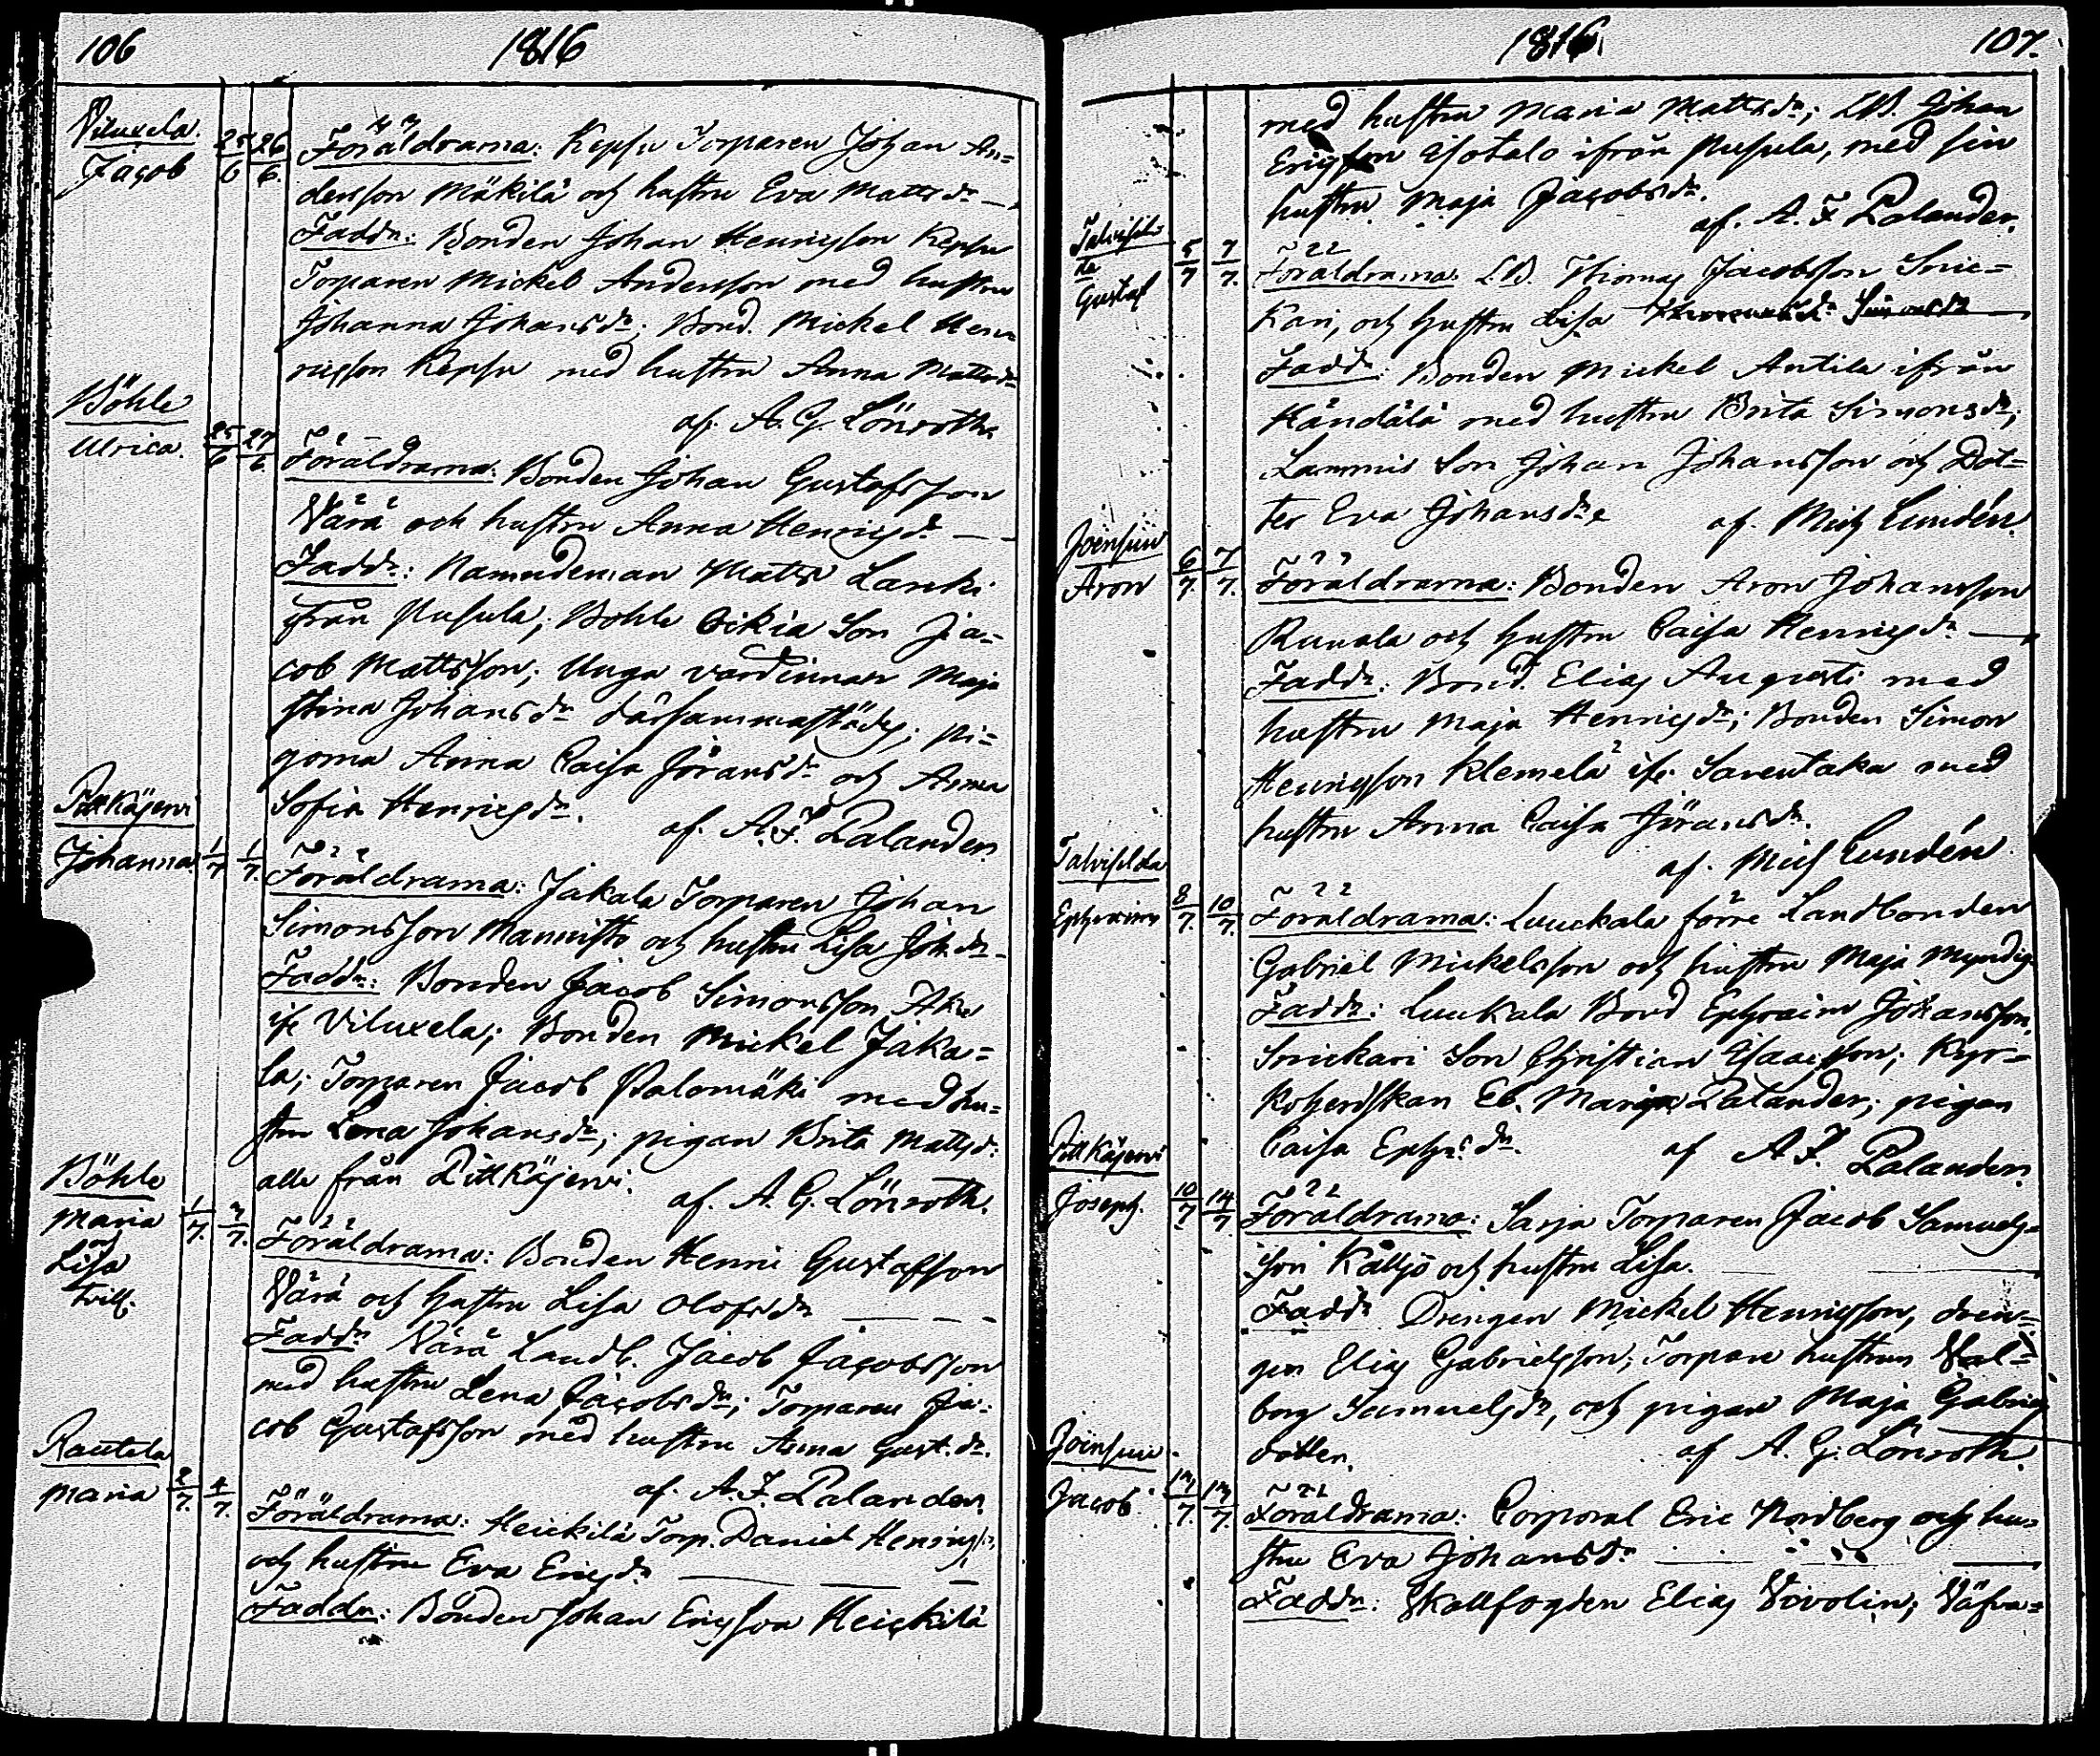 106
1816
Viluxela.
Jacob
25/6 26/6.
Föräldrarna: Kepsu Torparen Johan An=
dersson Mäkilä och hustru Eva Mattsdr
Faddr: Bonden Johan Henricsson Kepsu
Torparen Mickel Andersson med hustru
Johanna Johansdr; Bond. Mickel Hen
ricsson Kepsu med hustru Anna Mattsdr
af. A. G. Lönroth.
Böhle
Ulrica.
25/6 27/6
Föräldrarna: Bonden Johan Gustafsson
Värä och hustru Anna Henricsdr
Faddr: Namndeman Matts Lanki
från Pusula; Böhle Oikia Son Ja=
cob Mattsson; Unga värdinnan Maja
Stina Johansdr därsammastädes; Pi=
gorna Anna Caisa Jöransdr och Anna
Sofia Henricsdr.
af. A. F. Palander.
Pitkäjervi
Johanna.
1/7 1/7.
Föräldrarna: Jakala Torparen Johan
Simonsson Mannistö och hustru Lisa Joh.dr
Faddr: Bonden Jacob Simonsson Aku
ifr Viluxela; Bonden Mickel Jaka=
la; Torparen Jacob Palomäki med hu=
stru Lena Johansdr; pigan Brita Mattsd:
alla från Pittkäjervi.
af. A. G. Lönroth.
Böhle
Maria
och
Lisa
tvill.
1/7. 3/7.
Föräldrarna: Bonden Henric Gustafsson
Värä och hustru Lisa Olofsdr
Faddr Värä Landb. Jacob Jacobsson
med hustru Lena Jacobsdr; Torparen Ja=
cob Gustafsson med hustru Anna Gust.dr.
af. A. F. Palander.
Rautela
Maria
2/7. 4/7.
Föräldrarna: Heickilä Torp. Daniel Henricss.
och hustru Eva Ericsdr
Faddr: Bonden Johan Ericsson Heickilä
1816.
107.
med hustru Maria Mattsdr; LB. Johan
Ericsson Isotalo ifrån Pusula, med sin
hustru Maja Jacobsdr.
af. A. F. Palander.
Talvisil=
da
Gustaf
5/7 7/7.
Föräldrarna: LB. Thomas Jacobsson Snic=
kari, och hustru Lisa Simonsdr
Faddr: Bonden Mickel Antila ifrån
Händälä med hustru Brita Simonsdr;
Lammis Son Johan Johansson och Dot=
ter Eva Johansdr.
af. Mich Lundén.
Joensuu
Aron
6/7. 7/7.
Föräldrarna: Bonden Aron Johansson
Runala och hustru Caisa Henricsdr
Faddr: Bond. Elias Augusti med
hustru Maja Henricsdr; Bonden Simon
Henricsson Klemelä ifr. Sarentaka med
hustru Anna Caisa Jöransdr.
af. Mich Lundén
Talvisilda
Ephraim
8/7. 10/7.
Föräldrarna: Luuckala förre Landbonden
Gabriel Mickelsson och hustru Maja Myndig
Faddr: Luukala Bond Ephraim Johansson;
Snickari Son Christian Isaacsson; Kyr=
koherdskan Eb. Maria Palander; pigan
Caisa Ephr.dr.
af A. F. Palander.
Pittkäjervi
Joseph.
10/7 14/7
Föräldrarna: Sarja Torparen Jacob Samuels=
son Kälkjö och hustru Lisa.
Faddr Drengen Mickel Henricsson, dren=
gen Elias Gabrielsson; Torpare hustrun Val=
borg Samuelsdr, och pigan Maja Gabriels
dotter.
af A. G. Lönroth.
Joensuu.
Jacob.
13/7. 13/7.
Föräldrarna: Corporal Eric Nordberg och hu=
stru Eva Johansdr
Faddr: Skallfogden Elias Vivolin; Väfva=